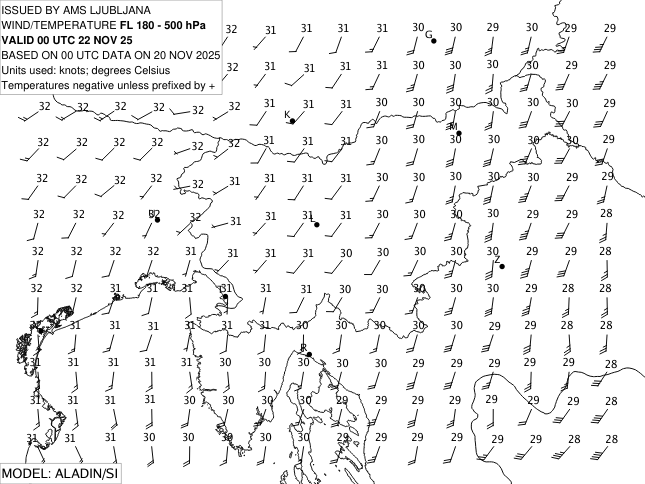 ISSUED BY AMS LJUBLJANA
WIND/TEMPERATURE FL 180 - 500 hPa
VALID 00 UTC 22 NOV 25
BASED ON 00 UTC DATA ON 20 NOV 2025
Units used: knots; degrees Celsius
Temperatures negative unless prefixed by +
32 31 31 31 30 30 30 30 29 29
G
32 31 31 31 30 30 30 30 30 29
32 32 32 32 32 31 31 31 30 30 30 30 30 29
K
M
32 32 32 32 32 31 31 31 30 30 30 30 30 29
32 32 32 32 32 31 31 31 30 30 30 30 29 29
32 32 32 32 32 31 31 31 30 30 30 29 29 28
L
32 32 32 32 31 31 31 31 30 30 30 30 29 29 28
Z
32 32 31 31 31 31 31 31 30 30 30 30 29 28 28
31 31 31 31 31 31 30 30 30 30 30 29 29 28 28
R
31 31 31 31 31 30 30 30 30 30 29 29 29 29 29 28
31 31 31 31 30 30 30 30 30 29 29 29 29 29 28 28
31 31 31 30 30 30 30 30 29 29 29 29 29 29 28 28
MODEL: ALADIN/SI